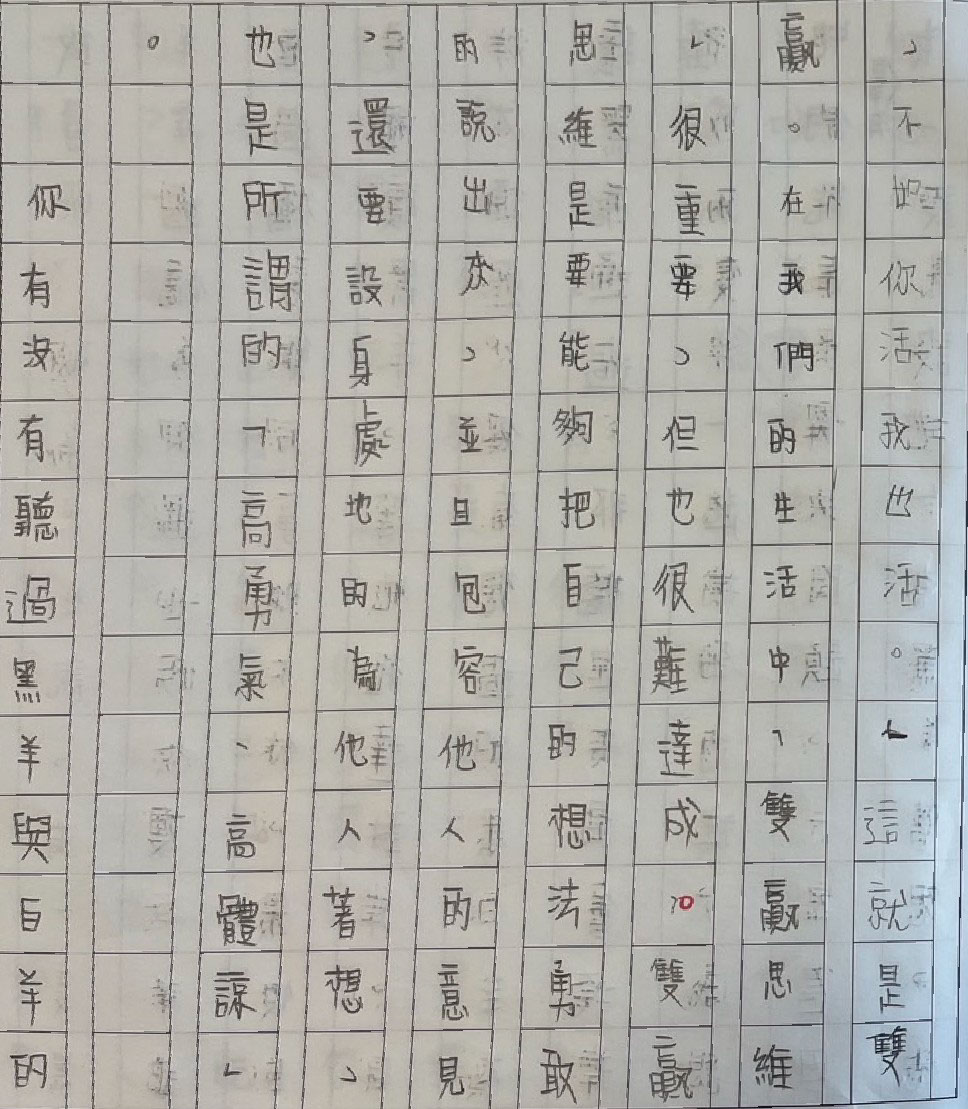 ，不如你活我也活。」這就是雙
贏。在我們的生活中，雙贏思維
，很重要，但也很難達成。雙贏
思維是要能夠把自己的想法勇敢
的說出來，並且包容他人的意見
，還要設身處地的為他人著想，
也是所謂的「高勇氣、高體諒」
。
你有沒有聽過黑羊與白羊的